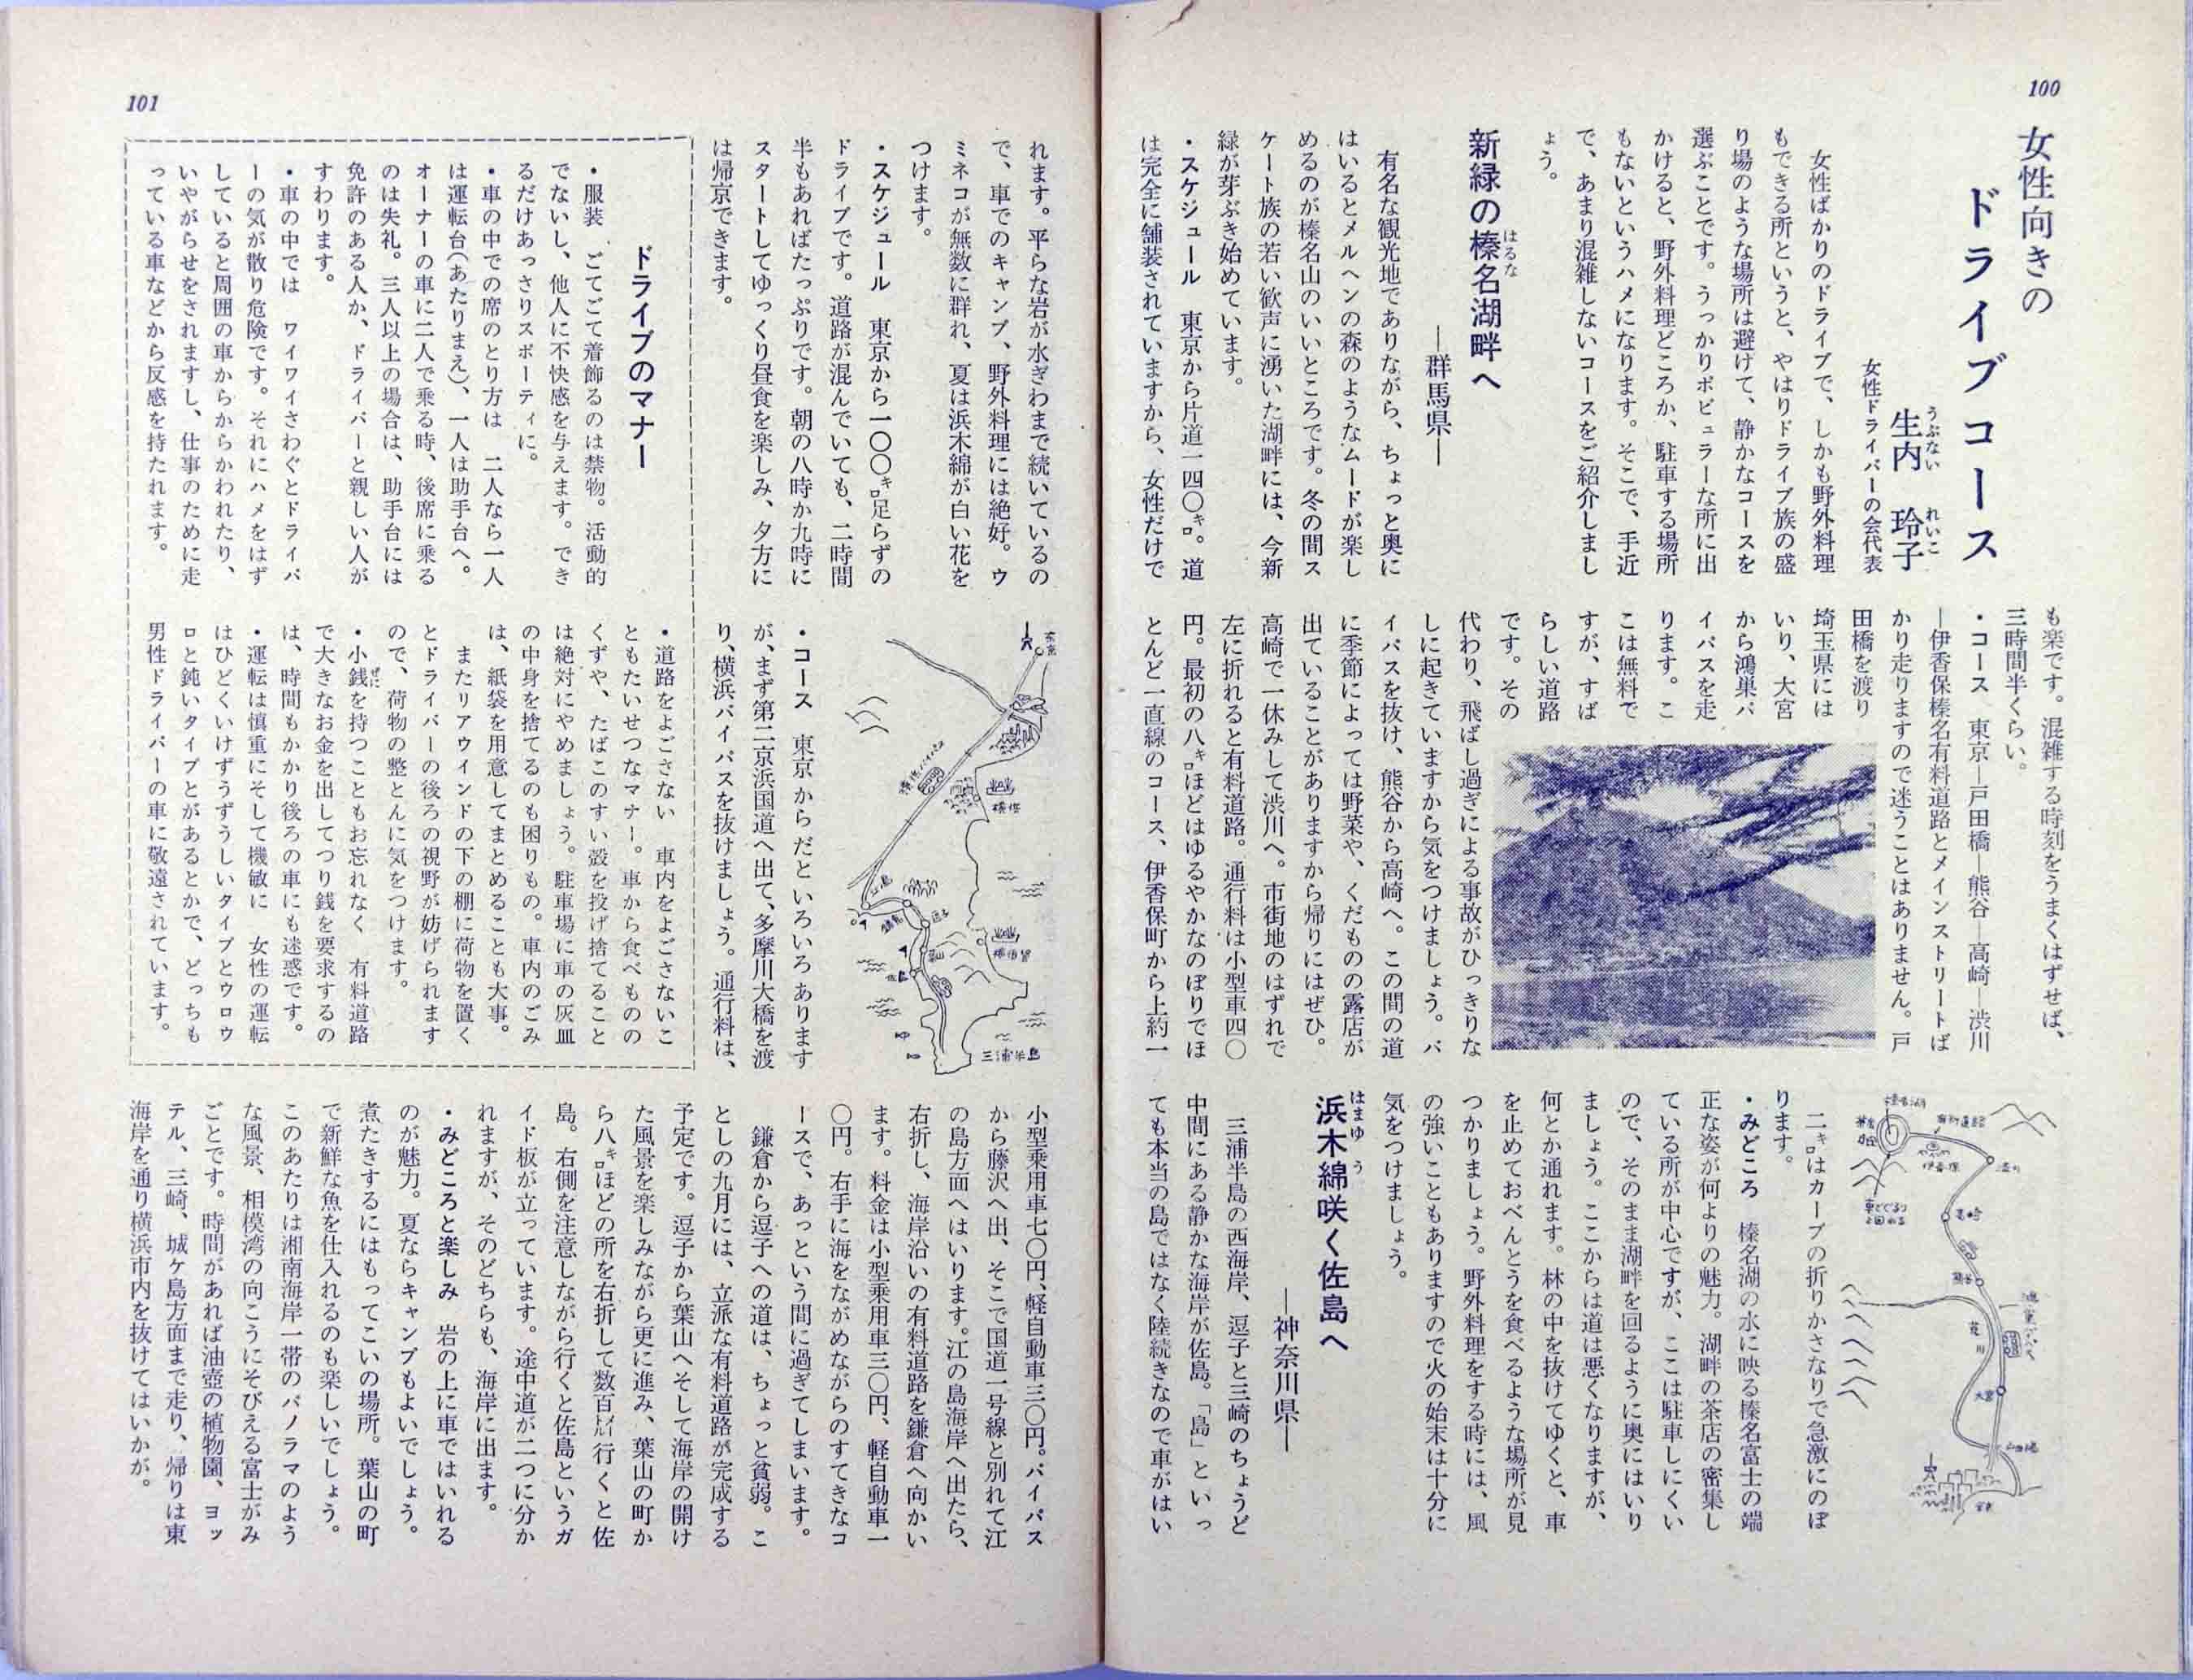 100
女性向きの
ドライブコース
生内　玲子
うぶない　れいこ
女性ドライバーの会代表
女性ばかりのドライブで、しかも野外料理
もできる所というと、やはりドライブ族の盛
り場のような場所は避けて、静かなコースを
選ぶことです。うっかりポピュラーな所に出
かけると、野外料理どころか、駐車する場所
もないというハメになります。そこで、手近
で、あまり混雑しないコースをご紹介しまし
ょう。
新緑の榛名湖畔へ
はるな
―群馬県―
有名な観光地でありながら、ちょっと奥に
はいるとメルヘンの森のようなムードが楽し
めるのが榛名山のいいところです。冬の間ス
ケート族の若い歓声に湧いた湖畔には、今新
緑が芽ぶき始めています。
・スケジュール　東京から片道一四〇㌔。道
は完全に舗装されていますから、女性だけで
も楽です。混雑する時刻をうまくはずせば、
三時間半くらい。
・コース　東京―戸田橋―熊谷―高崎―渋川
―伊香保榛名有料道路とメインストリートば
かり走りますので迷うことはありません。戸
田橋を渡り
埼玉県には
いり、大宮
から鴻巣バ
イパスを走
ります。こ
こは無料で
すが、すば
らしい道路
です。その
代わり、飛ばし過ぎによる事故がひっきりな
しに起きていますから気をつけましょう。バ
イパスを抜け、熊谷から高崎へ。この間の道
に季節によっては野菜や、くだものの露店が
出ていることがありますから帰りにはぜひ。
高崎で一休みして渋川へ。市街地のはずれで
左に折れると有料道路。通行料は小型車四〇
円。最初の八㌔ほどはゆるやかなのぼりでほ
とんど一直線のコース、伊香保町から上約一
二㌔はカーブの折りかさなりで急激にのぼ
ります。
・みどころ　榛名湖の水に映る榛名富士の端
正な姿が何よりの魅力。湖畔の茶店の密集し
ている所が中心ですが、ここは駐車しにくい
ので、そのまま湖畔を回るように奥にはいり
ましょう。ここからは道は悪くなりますが、
何とか通れます。林の中を抜けてゆくと、車
を止めておべんとうを食べるような場所が見
つかりましょう。野外料理をする時には、風
の強いこともありますので火の始末は十分に
気をつけましょう。
浜木綿咲く佐島へ
はまゆう
―神奈川県―
三浦半島の西海岸、逗子と三崎のちょうど
中間にある静かな海岸が佐島。「島」といっ
ても本当の島ではなく陸続きなので車がはい
榛名湖
伊香保
渋川
高崎
熊谷
鴻巣バイパス
荒川
大宮
戸田橋
東京
101
れます。平らな岩が水ぎわまで続いているの
で、車でのキャンプ、野外料理には絶好。ウ
ミネコが無数に群れ、夏は浜木綿が白い花を
つけます。
・スケジュール　東京から一〇〇㌔足らずの
ドライブです。道路が混んでいても、二時間
半もあればたっぷりです。朝の八時か九時に
スタートしてゆっくり昼食を楽しみ、夕方に
は帰京できます。
東京
横浜バイパス
横浜
江ノ島
鎌倉
逗子
横須賀
佐島
三浦半島
・コース　東京からだといろいろあります
が、まず第二京浜国道へ出て、多摩川大橋を渡
り、横浜バイパスを抜けましょう。通行料は、
小型乗用車七〇円、軽自動車三〇円。バイパス
から藤沢へ出、そこで国道一号線と別れて江
の島方面へはいります。江の島海岸へ出たら、
右折し、海岸沿いの有料道路を鎌倉へ向かい
ます。料金は小型乗用車三〇円、軽自動車一
〇円。右手に海をながめながらのすてきなコ
ースで、あっという間に過ぎてしまいます。
鎌倉から逗子への道は、ちょっと貧弱。こ
としの九月には、立派な有料道路が完成する
予定です。逗子から葉山へそして海岸の開け
た風景を楽しみながら更に進み、葉山の町か
ら八㌔ほどの所を右折して数百㍍行くと佐
島。右側を注意しながら行くと佐島というガ
イド板が立っています。途中道が二つに分か
れますが、そのどちらも、海岸に出ます。
・みどころと楽しみ　岩の上に車ではいれる
のが魅力。夏ならキャンプもよいでしょう。
煮たきするにはもってこいの場所。葉山の町
で新鮮な魚を仕入れるのも楽しいでしょう。
このあたりは湘南海岸一帯のパノラマのよう
な風景、相模湾の向こうにそびえる富士がみ
ごとです。時間があれば油壺の植物園、ヨッ
テル、三崎、城ヶ島方面まで走り、帰りは東
海岸を通り横浜市内を抜けてはいかが。
ドライブのマナー
・服装　ごてごて着飾るのは禁物。活動的
でないし、他人に不快感を与えます。でき
るだけあっさりスポーティに。
・車の中での席のとり方は　二人なら一人
は運転台（あたりまえ）、一人は助手台へ。
オーナーの車に二人で乗る時、後席に乗る
のは失礼。三人以上の場合は、助手台には
免許のある人か、ドライバーと親しい人が
すわります。
・車の中では　ワイワイさわぐとドライバ
ーの気が散り危険です。それにハメをはず
していると周囲の車からからかわれたり、
いやがらせをされますし、仕事のために走
っている車などから反感を持たれます。
・道路をよごさない　車内をよごさないこ
ともたいせつなマナー。車から食べものの
くずや、たばこのすい殻を投げ捨てること
は絶対にやめましょう。駐車場に車の灰皿
の中身を捨てるのも困りもの。車内のごみ
は、紙袋を用意してまとめることも大事。
またリアウインドの下の棚に荷物を置く
とドライバーの後ろの視野が妨げられます
ので、荷物の整とんに気をつけます。
・小銭を持つこともお忘れなく　有料道路
ぜに
で大きなお金を出してつり銭を要求するの
は、時間もかかり後ろの車にも迷惑です。
・運転は慎重にそして機敏に　女性の運転
はひどくいけずうずうしいタイプとウロウ
ロと鈍いタイプとがあるとかで、どっちも
男性ドライバーの車に敬遠されています。